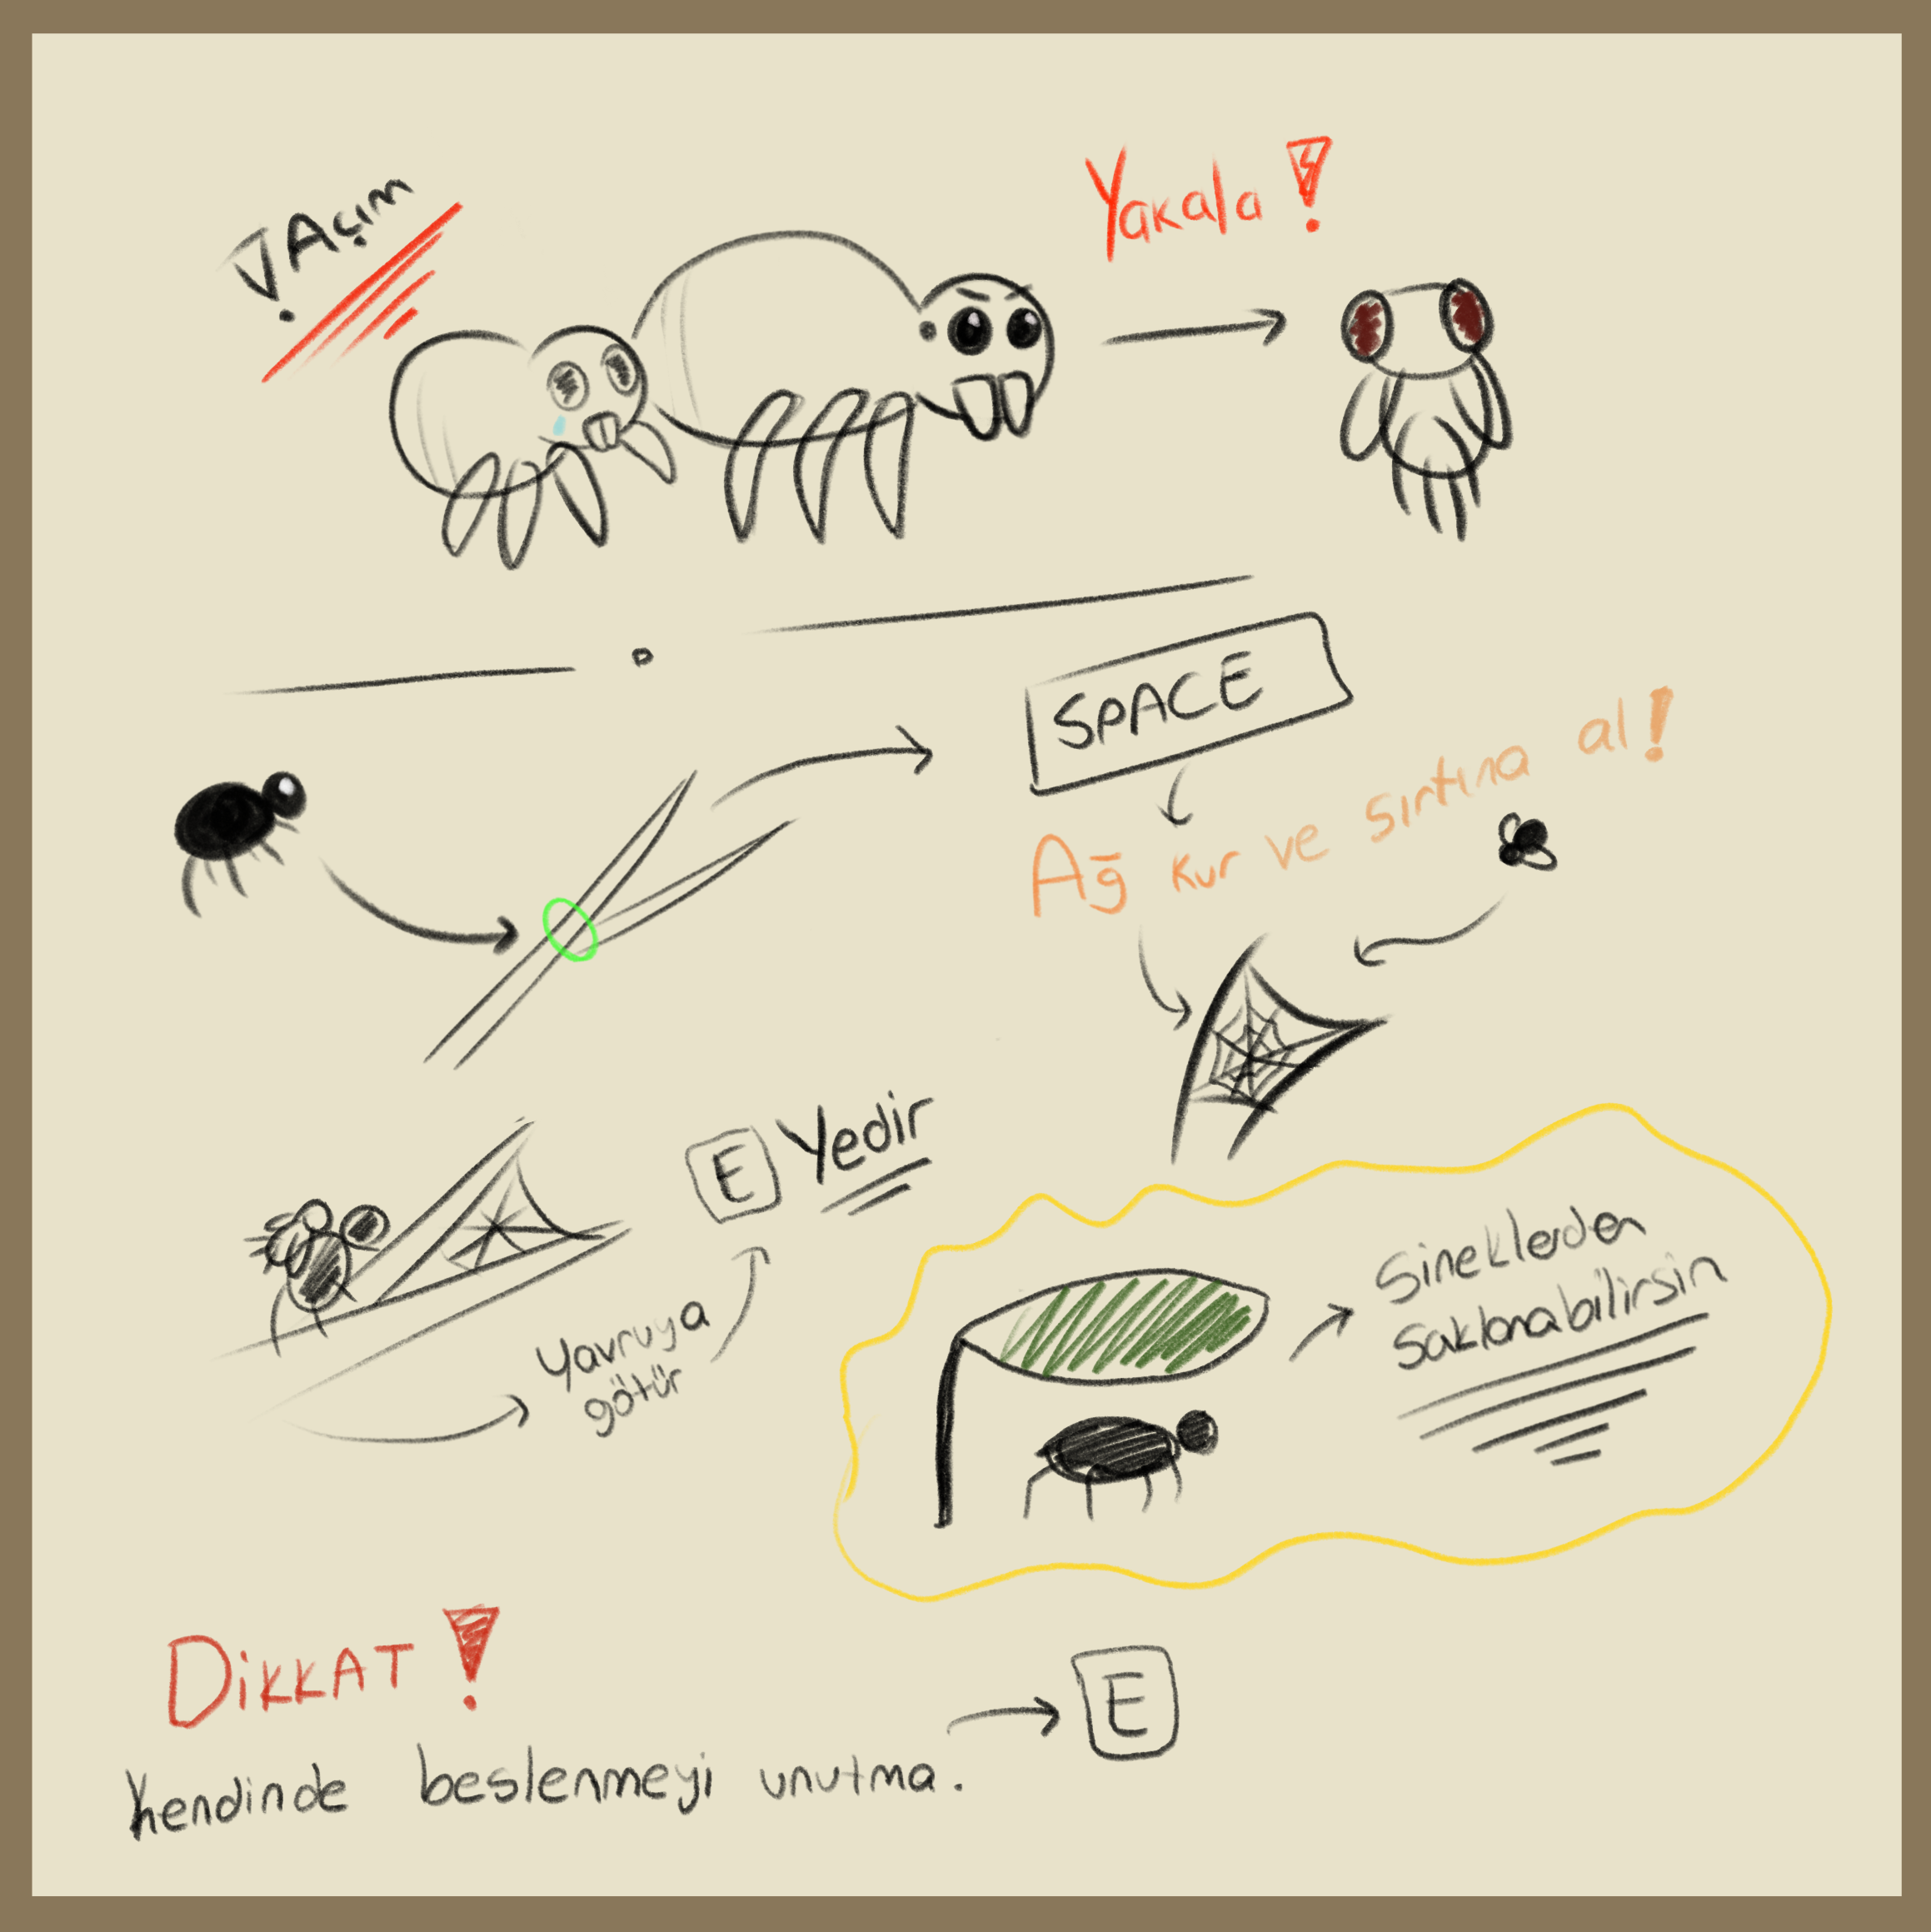 ! Açım
Yakala !
SPACE
Ağ kur ve sırtına al !
E Yedir
Yavruya
götür
Sineklerden
saklanabilirsin
DİKKAT !
Kendinde beslenmeyi unutma.
E